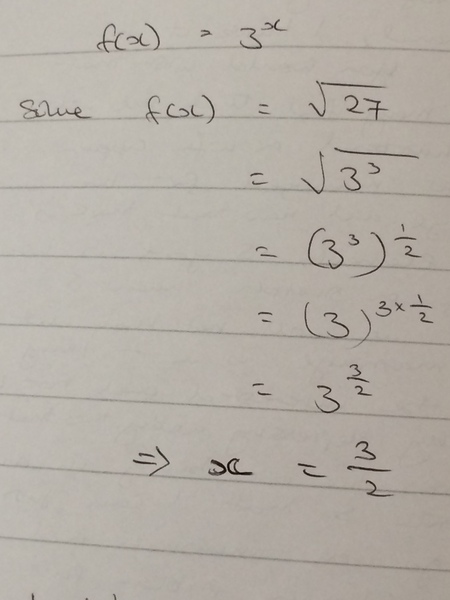 f(x) = 3^x
Solve f(x) = √27
= √3³
= (3³)^½
= (3)^(3×½)
= 3^(3/2)
⇒ x = 3/2